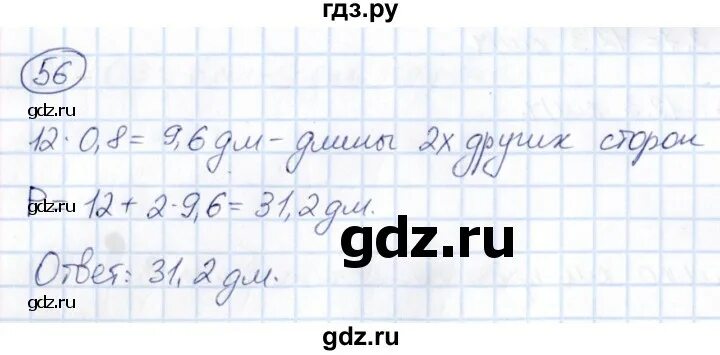 гдз.ру
56
gdz.ru
12·0,8=9,6 дм - длины 2х других сторон
gdz.ru
P= 12+2·9,6=31,2 дм.
gdz.ru
gdz.ru
Ответ: 31,2 дм.
gdz.ru
gdz.ru